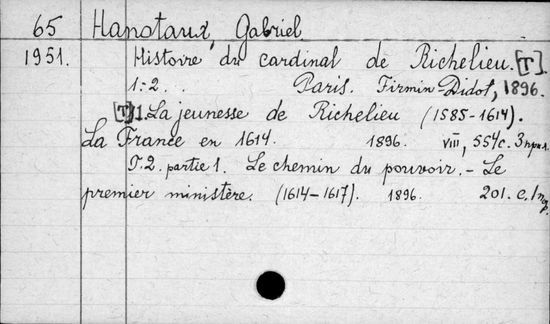 65 Hanotaux, Gabriel
1951. Histoire du cardinal de Richelieu. [T].
1.-2. . . Paris. Firmin-Didot, 1896.
[T] 1. La jeunesse de Richelieu (1585-1614).
La France en 1614. 1896. VIII, 554c. 3
T. 2. partie 1. Le chemin du pouvoir. - Le
premier ministère. (1614-1617). 1896. 201. c. 1